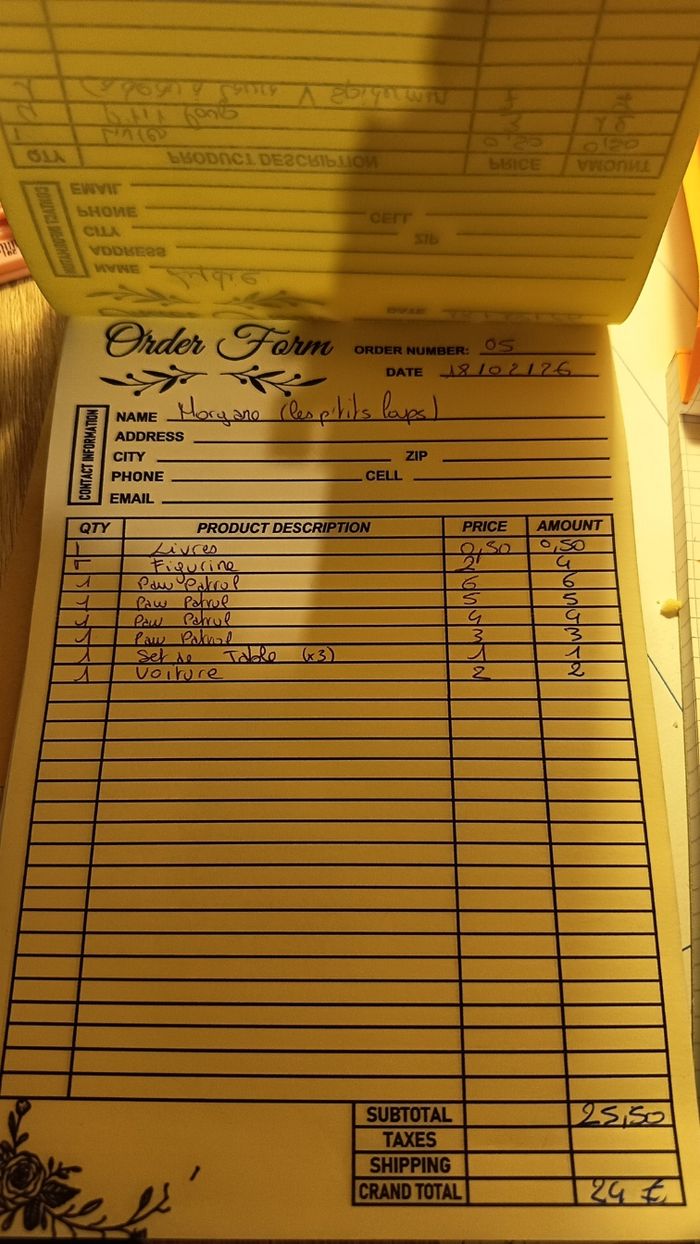 QTY PRODUCT DESCRIPTION PRICE AMOUNT
EMAIL
PHONE CELL
CITY ZIP
ADDRESS
NAME
DATE
Order Form
ORDER NUMBER: 05
DATE 18/02/26
CONTACT INFORMATION
NAME Morgane (les p'tits loups)
ADDRESS
CITY ZIP
PHONE CELL
EMAIL
QTY PRODUCT DESCRIPTION PRICE AMOUNT
1 Livres 0,50 0,50
Figurine 2 4
1 Paw Patrol 6 6
1 Paw Patrol 5 5
1 Paw Patrol 4 4
1 Paw Patrol 3 3
1 Set de Table (x3) 1 1
1 Voiture 2 2
SUBTOTAL 25,50
TAXES
SHIPPING
GRAND TOTAL 24 €